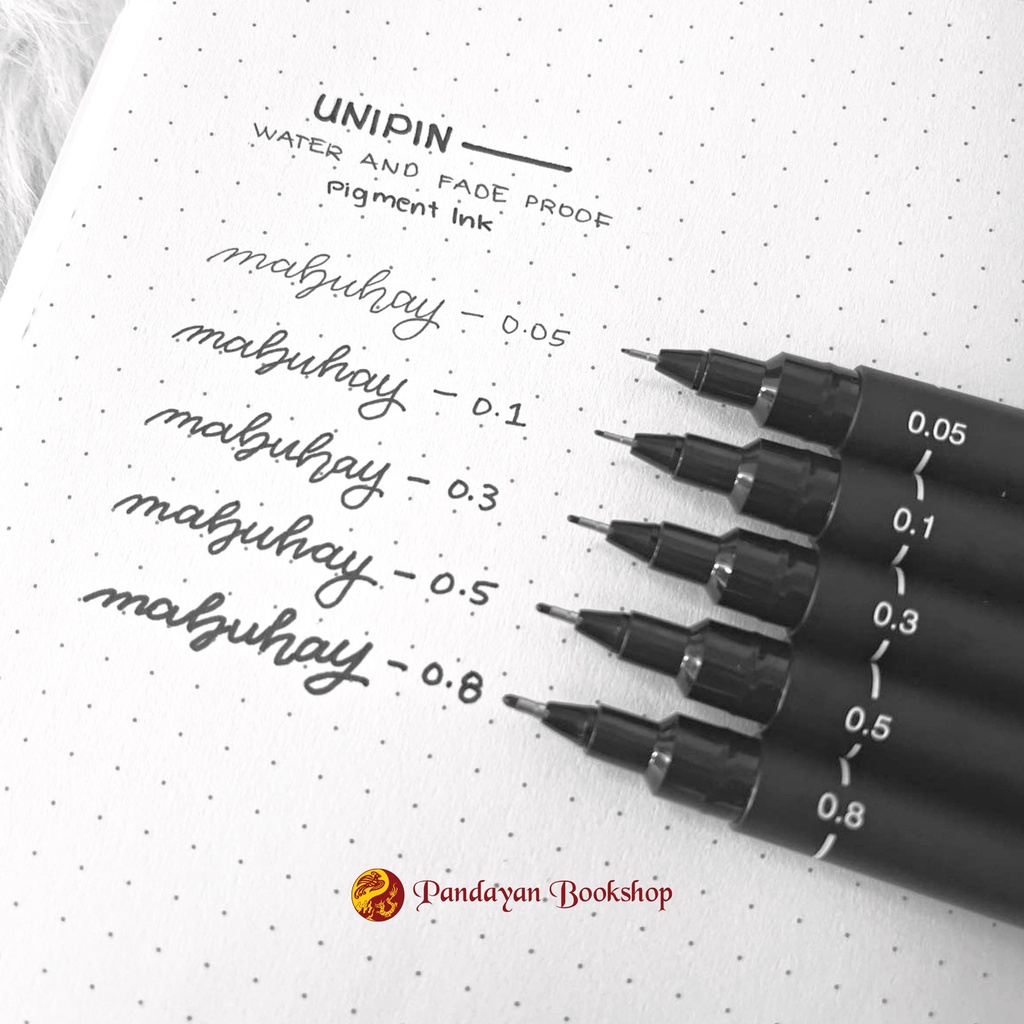 UNIPIN —
WATER AND FADE PROOF
Pigment Ink
mabuhay – 0.05
mabuhay – 0.1
mabuhay – 0.3
mabuhay – 0.5
mabuhay – 0.8
0.05
0.1
0.3
0.5
0.8
Pandayan Bookshop